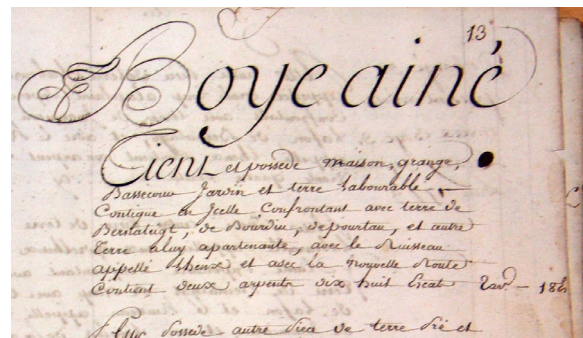 13
Boye ainé
Tient et possede maison, grange,
Bassecour Jardin et terre Labourable
Contigue en Jcelle Confrontant avec terre de
Bernatugt, de Bourdiu, depourtau, et autre
Terre aluy apartenante, avec le Ruisseau
appellé et avec la nouvelle Route
Contient deux arpents dix huit Escat
Plus possede autre Piea de terre Pré et